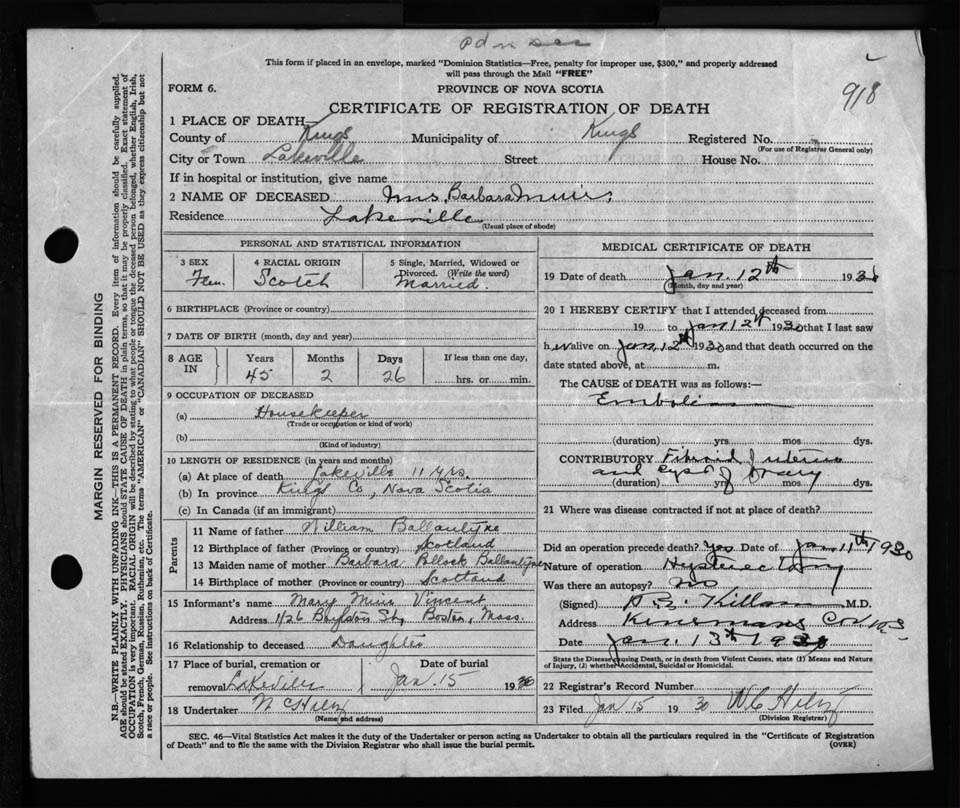 This form if placed in an envelope, marked "Dominion Statistics—Free, penalty for improper use, $300," and properly addressed
will pass through the Mail "FREE"
918
FORM 6.
PROVINCE OF NOVA SCOTIA
CERTIFICATE OF REGISTRATION OF DEATH
1 PLACE OF DEATH—
County of Kings Municipality of Kings Registered No.
(For use of Registrar General only)
City or Town Lakeville Street House No.
If in hospital or institution, give name
2 NAME OF DECEASED Mrs. Barbara Muir
Residence Lakeville
(Usual place of abode)
PERSONAL AND STATISTICAL INFORMATION
3 SEX 4 RACIAL ORIGIN 5 Single, Married, Widowed or
Divorced. (Write the word)
Fem. Scotch Married.
6 BIRTHPLACE (Province or country)
7 DATE OF BIRTH (month, day and year)
8 AGE IN Years Months Days If less than one day,
45 2 26 hrs. or min.
9 OCCUPATION OF DECEASED
(a) Housekeeper
(Trade or occupation or kind of work)
(b)
(Kind of industry)
10 LENGTH OF RESIDENCE (in years and months)
(a) At place of death Lakeville 11 yrs.
(b) In province Kings Co, Nova Scotia
(c) In Canada (if an immigrant)
Parents
11 Name of father William Ballantyne
12 Birthplace of father (Province or country) Scotland
13 Maiden name of mother Barbara Pollock Ballantyne
14 Birthplace of mother (Province or country) Scotland
15 Informant's name Mary Muir Vincent
Address 1126 Boylston St, Boston, Mass.
16 Relationship to deceased Daughter
17 Place of burial, cremation or Date of burial
removal Lakeville Jan. 15 1930
18 Undertaker
(Name and address)
MEDICAL CERTIFICATE OF DEATH
19 Date of death Jan. 12th 1930
(Month, day and year)
20 I HEREBY CERTIFY that I attended deceased from
19 to Jan 12th 1930 that I last saw
her alive on Jan. 12th 1930 and that death occurred on the
date stated above, at m.
The CAUSE OF DEATH was as follows:—
Embolism
(duration) yrs mos dys.
CONTRIBUTORY Fibroid of uterus
and cyst of ovary
(duration) yrs mos dys.
21 Where was disease contracted if not at place of death?
Did an operation precede death? Yes Date of Jan 11th 1930
Nature of operation Hysterectomy
Was there an autopsy? No
(Signed) Killam M.D.
Address
Date Jan. 13th 1930
State the Disease causing Death, or in death from Violent Causes, state (1) Means and Nature
of Injury, (2) whether Accidental, Suicidal or Homicidal.
22 Registrar's Record Number
23 Filed Jan 15 1930
(Division Registrar)
SEC. 46—Vital Statistics Act makes it the duty of the Undertaker or person acting as Undertaker to obtain all the particulars required in the "Certificate of Registration
of Death" and to file the same with the Division Registrar who shall issue the burial permit.
(OVER)
MARGIN RESERVED FOR BINDING
N.B.—WRITE PLAINLY WITH UNFADING INK—THIS IS A PERMANENT RECORD. Every item of information should be carefully supplied.
AGE should be stated EXACTLY. PHYSICIANS should STATE CAUSE OF DEATH in plain terms, so that it may be properly classified. Exact statement of
OCCUPATION is very important. RACIAL ORIGIN will be described by stating to what people or tongue the deceased person belonged, whether English, Irish,
Scotch, French, German, Russian, Ruthenian, etc. The terms "AMERICAN" or "CANADIAN" SHOULD NOT BE USED as they express citizenship but not
a race or people. See instructions on back of Certificate.